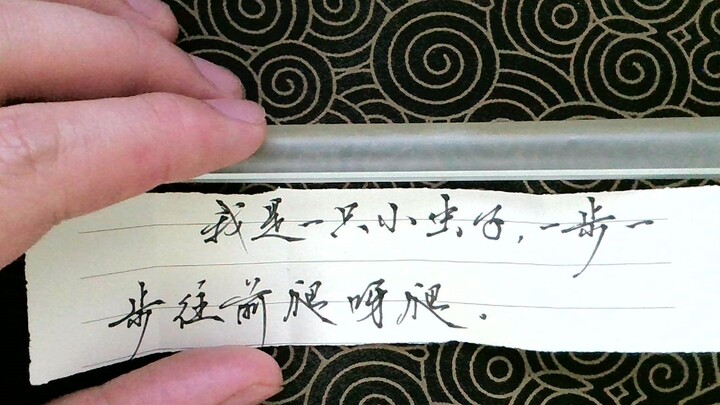 我是一只小虫子,一步一
步往前腿呀腿.